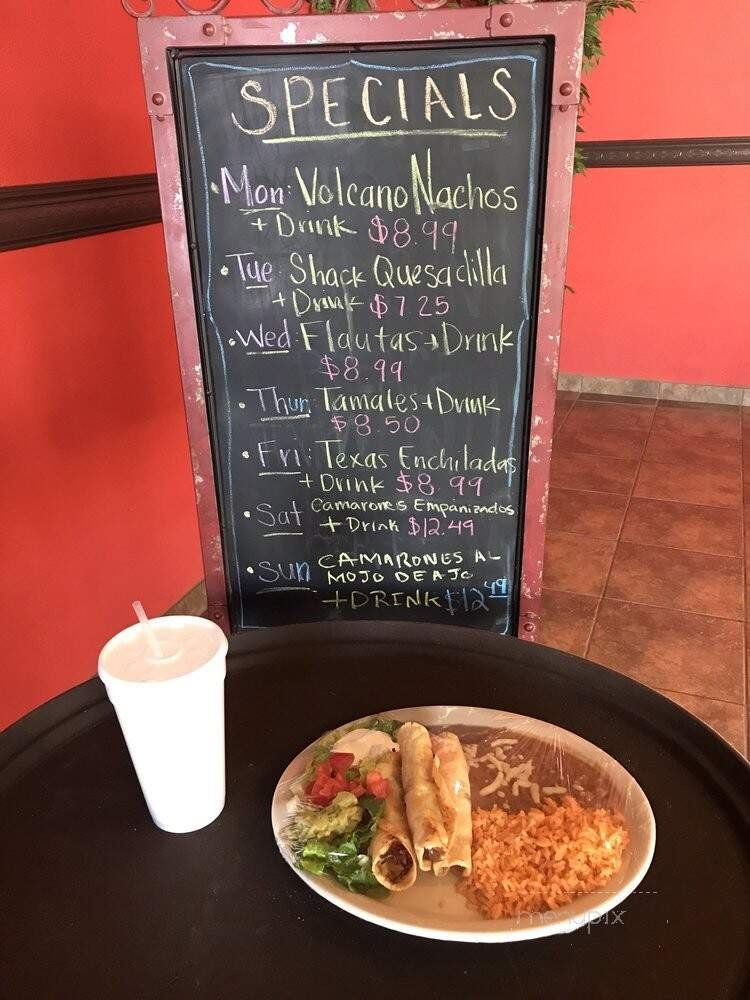 SPECIALS
• Mon: Volcano Nachos
+ Drink $8.99
• Tue Shack Quesadilla
+ Drink $7.25
• Wed Flautas + Drink
$8.99
• Thur Tamales + Drink
$8.50
• Fri: Texas Enchiladas
+ Drink $8.99
• Sat Camarones Empanizados
+ Drink $12.49
• Sun CAMARONES AL
MOJO DE AJO
+ DRINK $12 49
menupix